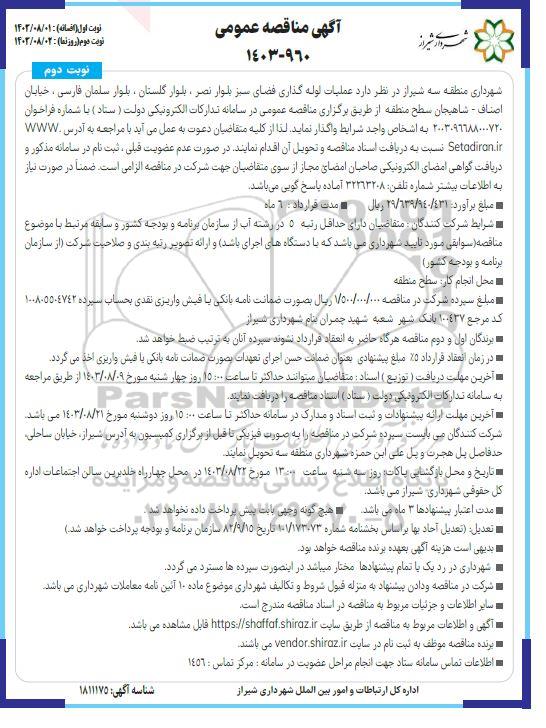 نوبت اول(افسانه): ۱۴۰۳/۰۸/۰۱
نوبت دوم(روزنما): ۱۴۰۳/۰۸/۰۲
آگهی مناقصه عمومی
۱۴۰۳-۹۶۰
شهرداری شیراز
نوبت دوم
شهرداری منطقه سه شیراز در نظر دارد عملیات لوله گذاری فضای سبز بلوار نصر ، بلوار گلستان ، بلوار سلمان فارسی ، خیابان
اصناف - شاهیجان سطح منطقه از طریق برگزاری مناقصه عمومی در سامانه تدارکات الکترونیکی دولت ( ستاد ) با شماره فراخوان
۲۰۰۳۰۹۶۶۸۸۰۰۰۷۲۰ به اشخاص واجد شرایط واگذار نماید. لذا از کلیه متقاضیان دعوت به عمل می آید با مراجعه به آدرس WWW.
Setadiran.ir نسبت به دریافت اسناد مناقصه و تحویل آن اقدام نمایند. در صورت عدم عضویت قبلی ، ثبت نام در سامانه مذکور و
دریافت گواهی امضای الکترونیکی صاحبان امضای مجاز از سوی متقاضیان جهت شرکت در مناقصه الزامی است. ضمناً در صورت نیاز
به اطلاعات بیشتر شماره تلفن: ۳۲۲۶۳۲۰۸ آماده پاسخ گویی می‌باشد.
■ مبلغ برآورد: ۲۹/۶۳۹/۹۴۰/۴۳۱ ریال ■ مدت قرارداد : ۶ ماه
■ شرایط شرکت کنندگان : متقاضیان دارای حداقل رتبه ۵ در رشته آب از سازمان برنامه و بودجه کشور و سابقه مرتبط با موضوع
مناقصه(سوابقی مورد تایید شهرداری می باشد که با دستگاه های اجرای باشد) و ارائه تصویر رتبه بندی و صلاحیت شرکت (از سازمان
برنامه و بودجه کشور)
■ محل انجام کار: سطح منطقه
■ مبلغ سپرده شرکت در مناقصه ۱/۵۰۰/۰۰۰/۰۰۰ ریال بصورت ضمانت نامه بانکی یا فیش واریزی نقدی بحساب سپرده ۱۰۰۸۰۵۵۰۴۷۴۲
کد مرجع ۱۰۰۴۳۷ بانک شهر شعبه شهید چمران بنام شهرداری شیراز
■ برندگان اول و دوم مناقصه هرگاه حاضر به انعقاد قرارداد نشوند سپرده آنان به ترتیب ضبط خواهد شد.
■ در زمان انعقاد قرارداد ۵٪ مبلغ پیشنهادی بعنوان ضمانت حسن اجرای تعهدات بصورت ضمانت نامه بانکی یا فیش واریزی اخذ می گردد.
■ آخرین مهلت دریافت ( توزیع ) اسناد : متقاضیان میتوانند حداکثر تا ساعت ۱۵:۰۰ روز چهار شنبه مورخ ۱۴۰۳/۰۸/۰۹ از طریق مراجعه
به سامانه تدارکات الکترونیکی دولت ( ستاد ) اسناد مناقصه را دریافت نمایند.
■ آخرین مهلت ارائه پیشنهادات و ثبت اسناد و مدارک در سامانه حداکثر تا ساعت ۱۵:۰۰ روز دوشنبه مورخ ۱۴۰۳/۰۸/۲۱ می باشد.
شرکت کنندگان می بایست سپرده شرکت در مناقصه را به صورت فیزیکی تا قبل از برگزاری کمیسیون به آدرس شیراز، خیابان ساحلی،
حدفاصل پل هجرت و پل علی ابن حمزه شهرداری منطقه سه تحویل نمایند.
■ تاریخ و محل بازگشایی پاکات: روز سه شنبه ساعت ۱۳:۰۰ مورخ ۱۴۰۳/۰۸/۲۲ در محل چهارراه خلدبرین سالن اجتماعات اداره
کل حقوقی شهرداری شیراز می باشد.
■ مدت اعتبار پیشنهادها ۳ ماه می باشد. ■ هیچ گونه وجهی بابت پیش پرداخت داده نخواهد شد.
■ تعدیل: (تعدیل آحاد بها براساس بخشنامه شماره ۱۰۱/۱۷۳۰۷۳ تاریخ ۸۲/۹/۱۵ سازمان برنامه و بودجه پرداخت خواهد شد.)
■ بدیهی است هزینه آگهی بعهده برنده مناقصه خواهد بود.
■ شهرداری در رد یک یا تمام پیشنهادها مختار میباشد در اینصورت سپرده ها مسترد می گردد.
■ شرکت در مناقصه ودادن پیشنهاد به منزله قبول شروط و تکالیف شهرداری موضوع ماده ۱۰ آئین نامه معاملات شهرداری می باشد.
■ سایر اطلاعات و جزئیات مربوط به مناقصه در اسناد مناقصه مندرج است.
■ آگهی و اطلاعات مربوط به مناقصه از طریق سایت https://shaffaf.shiraz.ir قابل مشاهده می باشد.
■ برنده مناقصه موظف به ثبت نام در سایت vendor.shiraz.ir می باشند.
■ اطلاعات تماس سامانه ستاد جهت انجام مراحل عضویت در سامانه : مرکز تماس : ۱۴۵۶
اداره کل ارتباطات و امور بین الملل شهرداری شیراز
شناسه آگهی: ۱۸۱۱۱۷۵